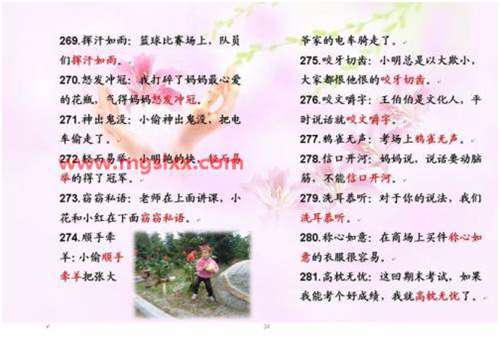 269.挥汗如雨：篮球比赛场上，队员
们挥汗如雨。
270.怒发冲冠：我打碎了妈妈最心爱
的花瓶，气得妈妈怒发冲冠。
271.神出鬼没：小偷神出鬼没，把电
车偷走了。
272.轻而易举：小明跑的快，轻而易
举的得了冠军。
273.窃窃私语：老师在上面讲课，小
花和小红在下面窃窃私语。
274.顺手牵
羊：小偷顺手
牵羊把张大
爷家的电车骑走了。
275.咬牙切齿：小明总是以大欺小，
大家都恨他恨的咬牙切齿。
276.咬文嚼字：王伯伯是文化人，平
时说话就咬文嚼字。
277.鸦雀无声：考场上鸦雀无声。
278.信口开河：妈妈说，说话要动脑
筋，不能信口开河。
279.洗耳恭听：对于你的说法，我们
洗耳恭听。
280.称心如意：在商场上买件称心如
意的衣服很容易。
281.高枕无忧：这回期末考试，如果
我能考个好成绩，我就高枕无忧了。